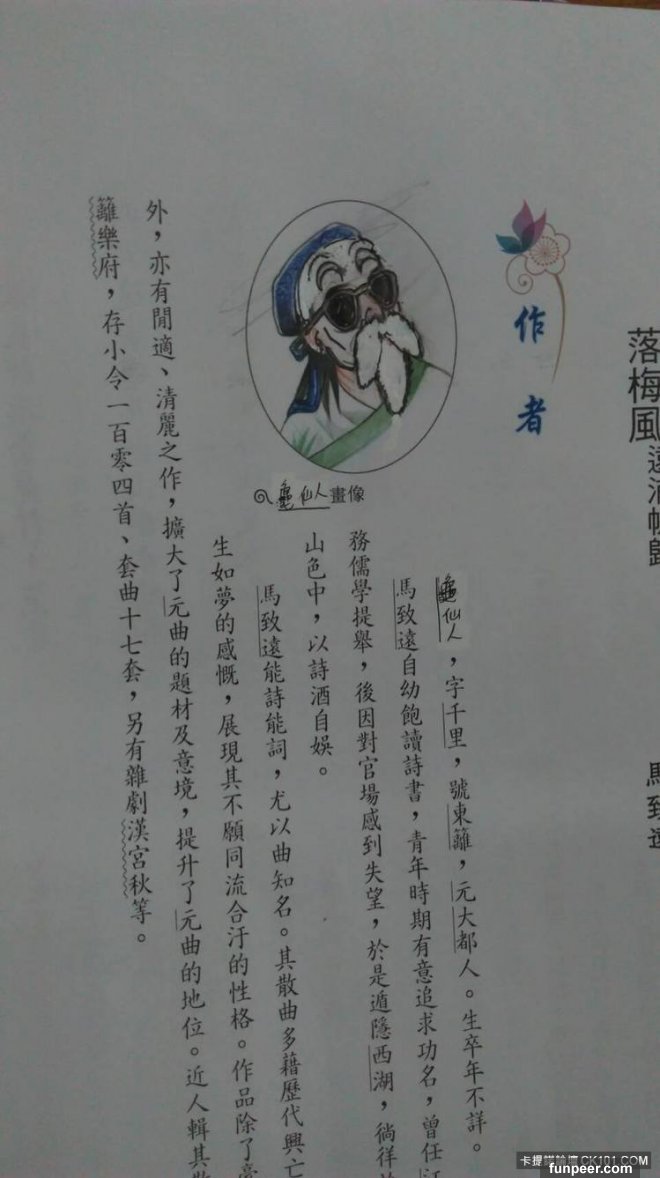 落梅風 遠浦帆歸
馬致遠
作者
龜仙人畫像
龜仙人，字千里，號東籬，元大都人。生卒年不詳。
馬致遠自幼飽讀詩書，青年時期有意追求功名，曾任江
務儒學提舉，後因對官場感到失望，於是遁隱西湖，徜徉
山色中，以詩酒自娛。
馬致遠能詩能詞，尤以曲知名。其散曲多藉歷代興亡
生如夢的感慨，展現其不願同流合汙的性格。作品除了豪
外，亦有閒適、清麗之作，擴大了元曲的題材及意境，提升了元曲的地位。近人輯其散
籬樂府，存小令一百零四首、套曲十七套，另有雜劇漢宮秋等。
卡提諾論壇 CK101.COM
funpeer.com